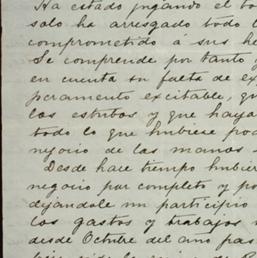 Ha estado jugando el to
solo ha arresgado todo l
comprometido á sus he
Se comprende por tanto,
en cuenta su falta de ex
peramento excitable, qu
los estribos y que haya
todo lo que hubiese pod
negocio de las manos
Desde hace tiempo hubier
negocio por completo y po
dejandole un participio
los gastos y trabajos
desde Octubre del año pas